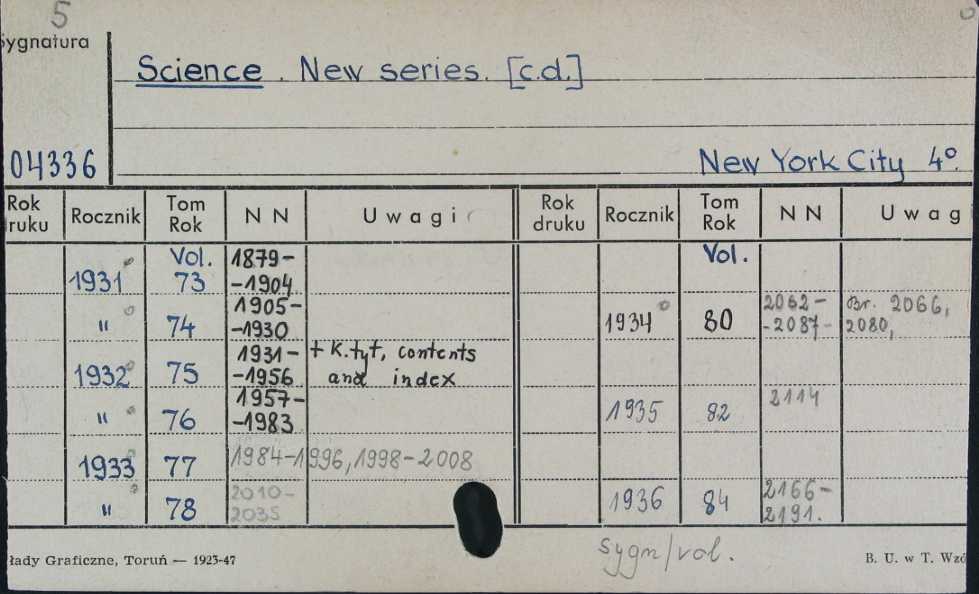 5
Sygnatura
Science. New series. [c.d.]
04336
New York City 4°.
Rok druku Rocznik Tom Rok N N Uwagi Rok druku Rocznik Tom Rok N N Uwag
Vol. 1879- Vol.
1931 73 -1904
1905- 2062- Br. 2066,
" 74 -1930 1934 80 -2087- 2080,
1931- + K.tyt, contents
1932 75 -1956 and index
1957- 2114
" 76 -1983 1935 82
1933 77 1984-1996, 1998-2008
2010- 2166-
" 78 2035 1936 84 2191.
sygn/vol.
łady Graficzne, Toruń — 1923-47 B. U. w T. Wzó